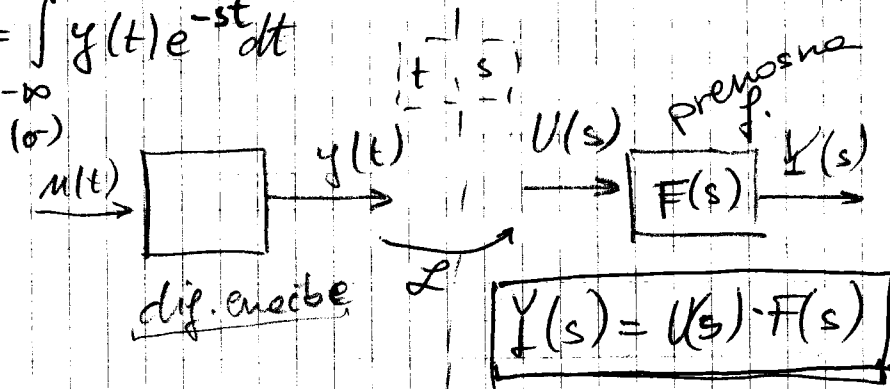 = ∫ y(t) e^{-st} dt
-∞
(o)
t s
prenosna
f.
u(t) y(t) U(s) F(s) Y(s)
ℒ
dif. enačbe
Y(s) = U(s) · F(s)